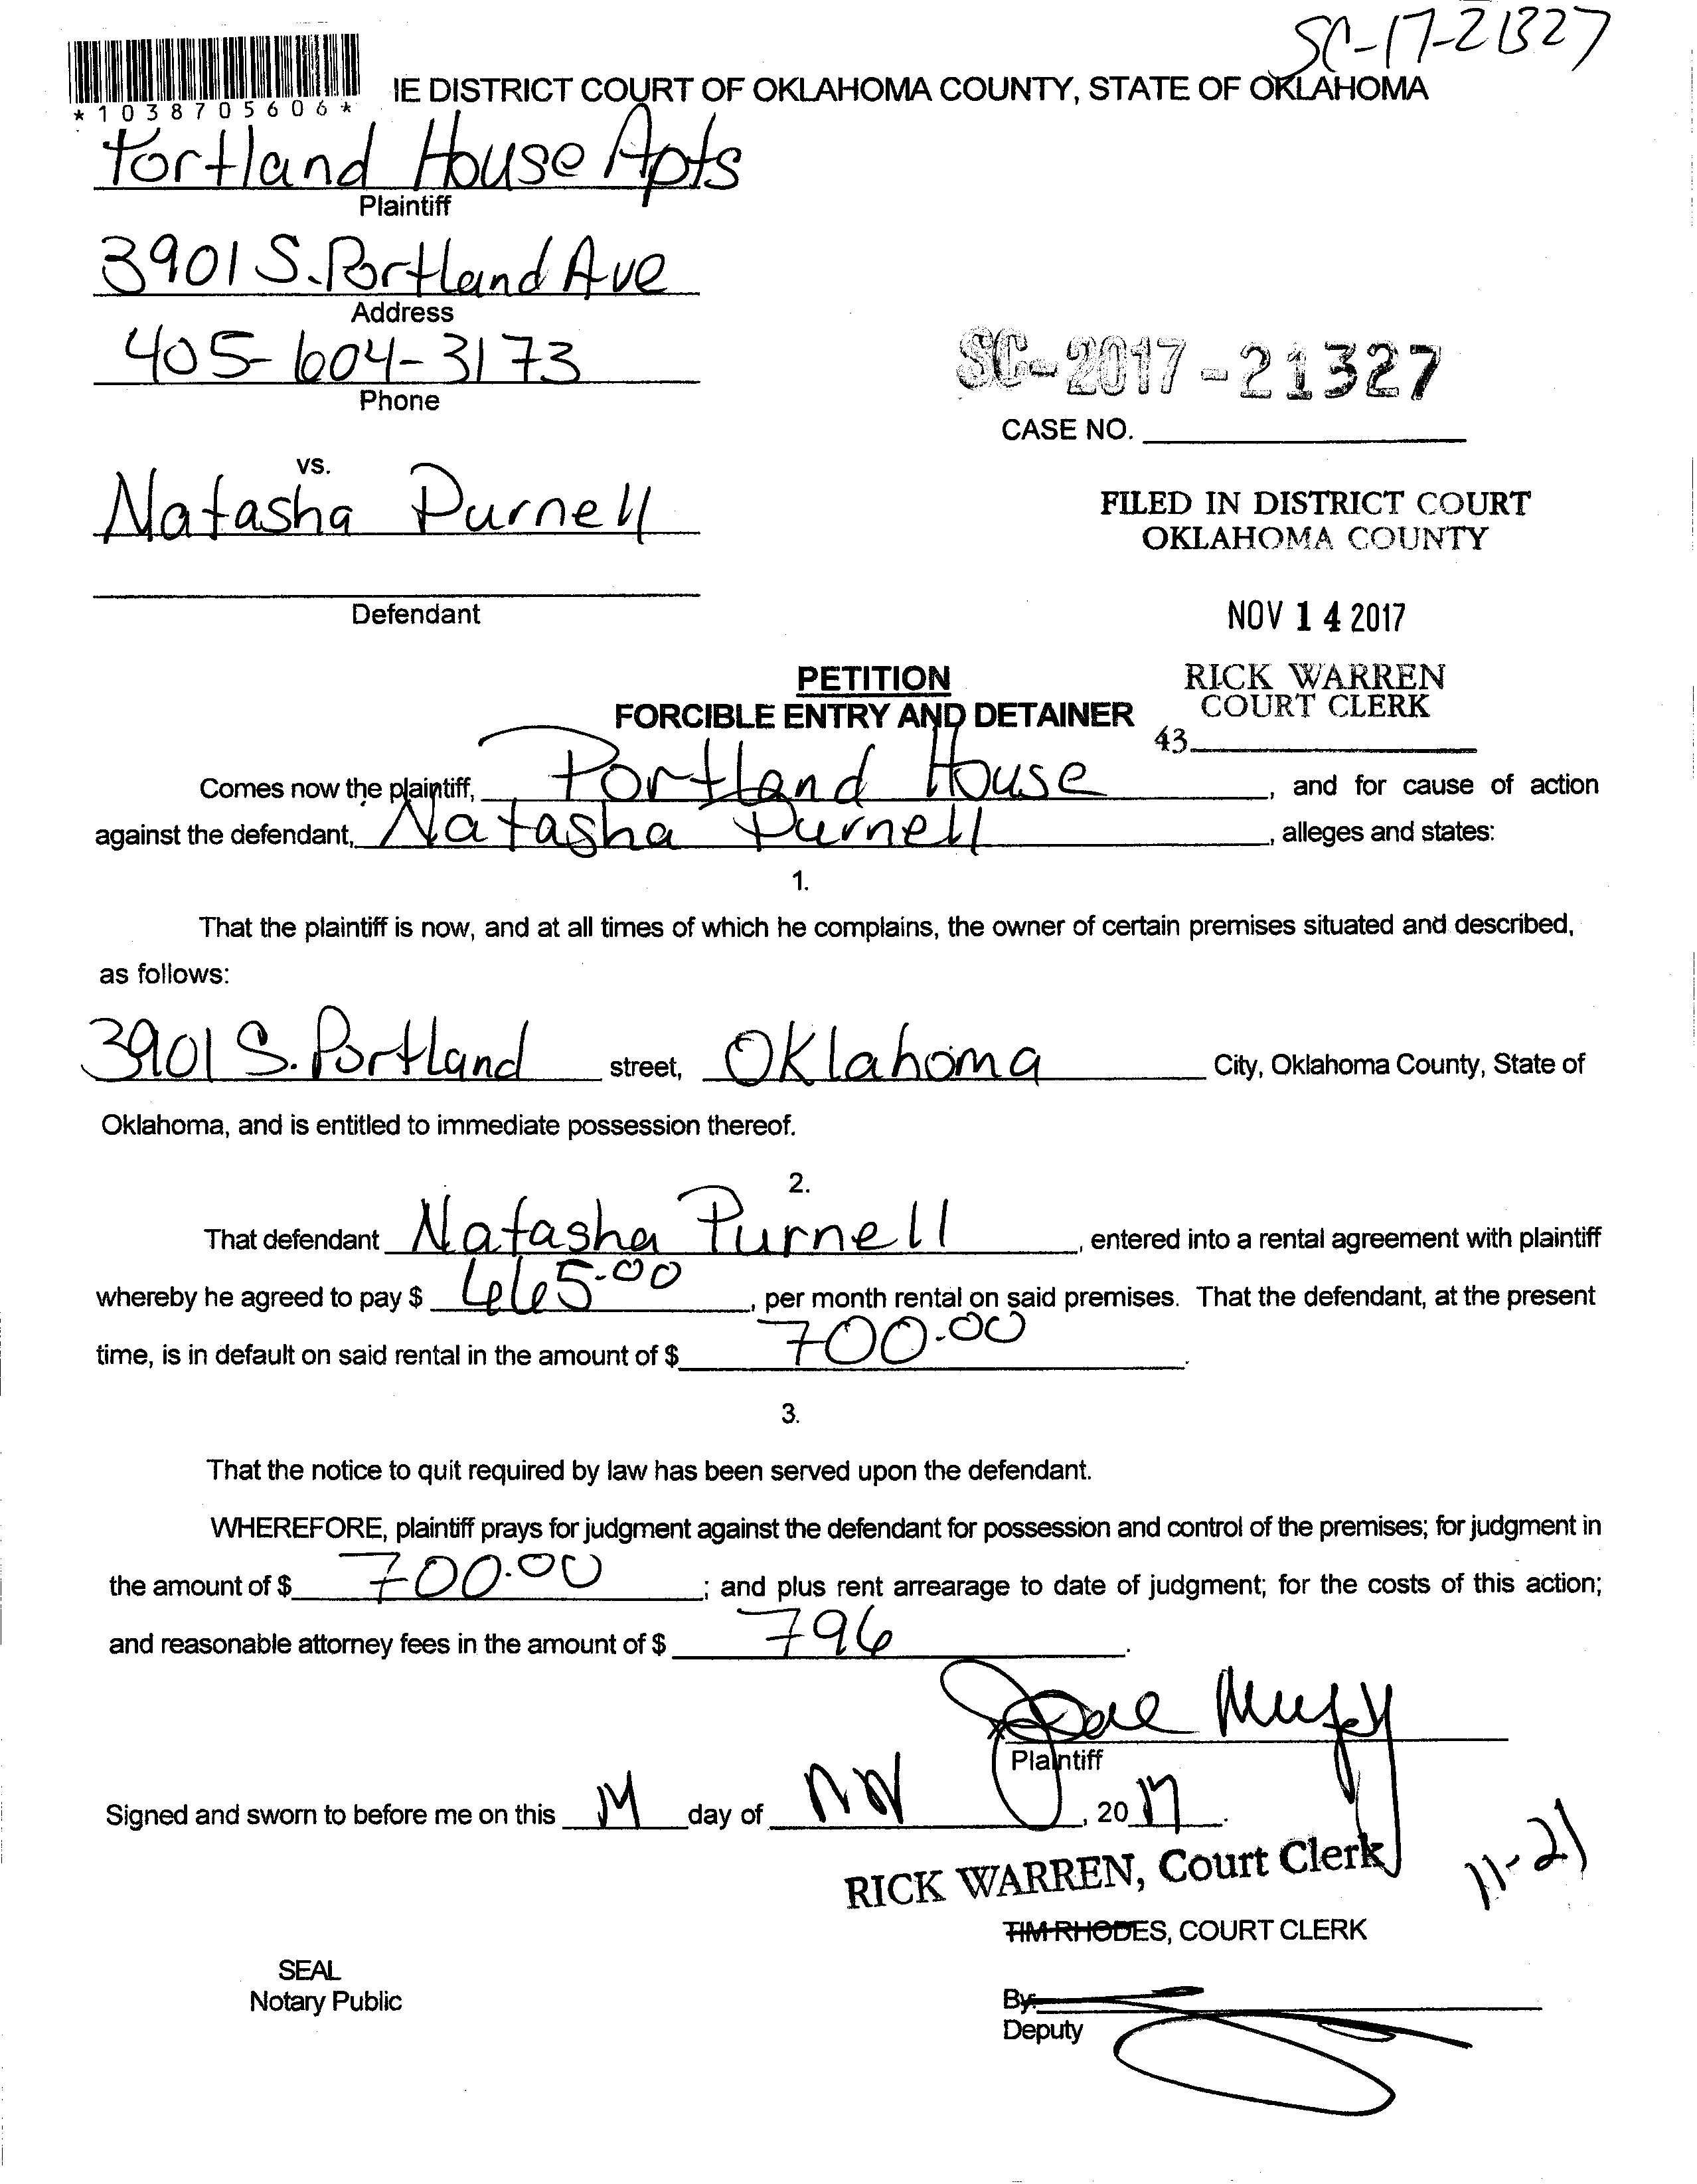 SC-17-21327
IE DISTRICT COURT OF OKLAHOMA COUNTY, STATE OF OKLAHOMA
*1038705606*
Portland House Apts
Plaintiff
3901 S. Portland Ave
Address
405-604-3173
Phone
SC-2017-21327
CASE NO.
vs.
Natasha Purnell
FILED IN DISTRICT COURT
OKLAHOMA COUNTY
Defendant
NOV 14 2017
PETITION
FORCIBLE ENTRY AND DETAINER
RICK WARREN
COURT CLERK
43
Comes now the plaintiff, Portland House, and for cause of action
against the defendant, Natasha Purnell, alleges and states:
1.
That the plaintiff is now, and at all times of which he complains, the owner of certain premises situated and described,
as follows:
3901 S. Portland street, Oklahoma City, Oklahoma County, State of
Oklahoma, and is entitled to immediate possession thereof.
2.
That defendant Natasha Purnell, entered into a rental agreement with plaintiff
whereby he agreed to pay $ 665.00, per month rental on said premises. That the defendant, at the present
time, is in default on said rental in the amount of $ 700.00.
3.
That the notice to quit required by law has been served upon the defendant.
WHEREFORE, plaintiff prays for judgment against the defendant for possession and control of the premises; for judgment in
the amount of $ 700.00; and plus rent arrearage to date of judgment; for the costs of this action;
and reasonable attorney fees in the amount of $ 796.
Plaintiff
Signed and sworn to before me on this 14 day of NOV, 2017.
RICK WARREN, Court Clerk
11-21
TIM RHODES, COURT CLERK
SEAL
Notary Public
By:
Deputy